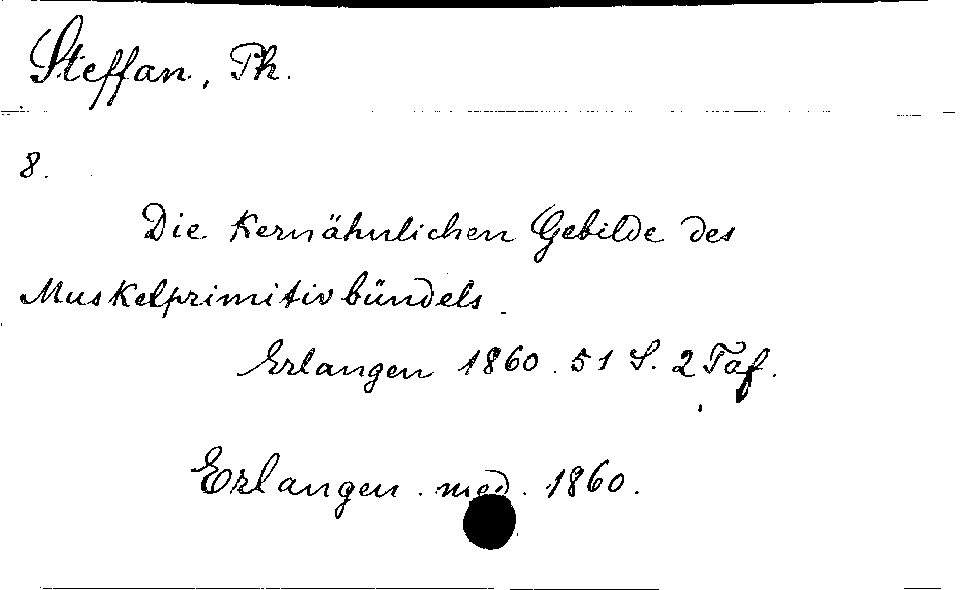 Steffan, Ph.
8.
Die kernähnlichen Gebilde des
Muskelprimitivbündels.
Erlangen 1860. 51 S. 2 Taf.
Erlangen. med. 1860.